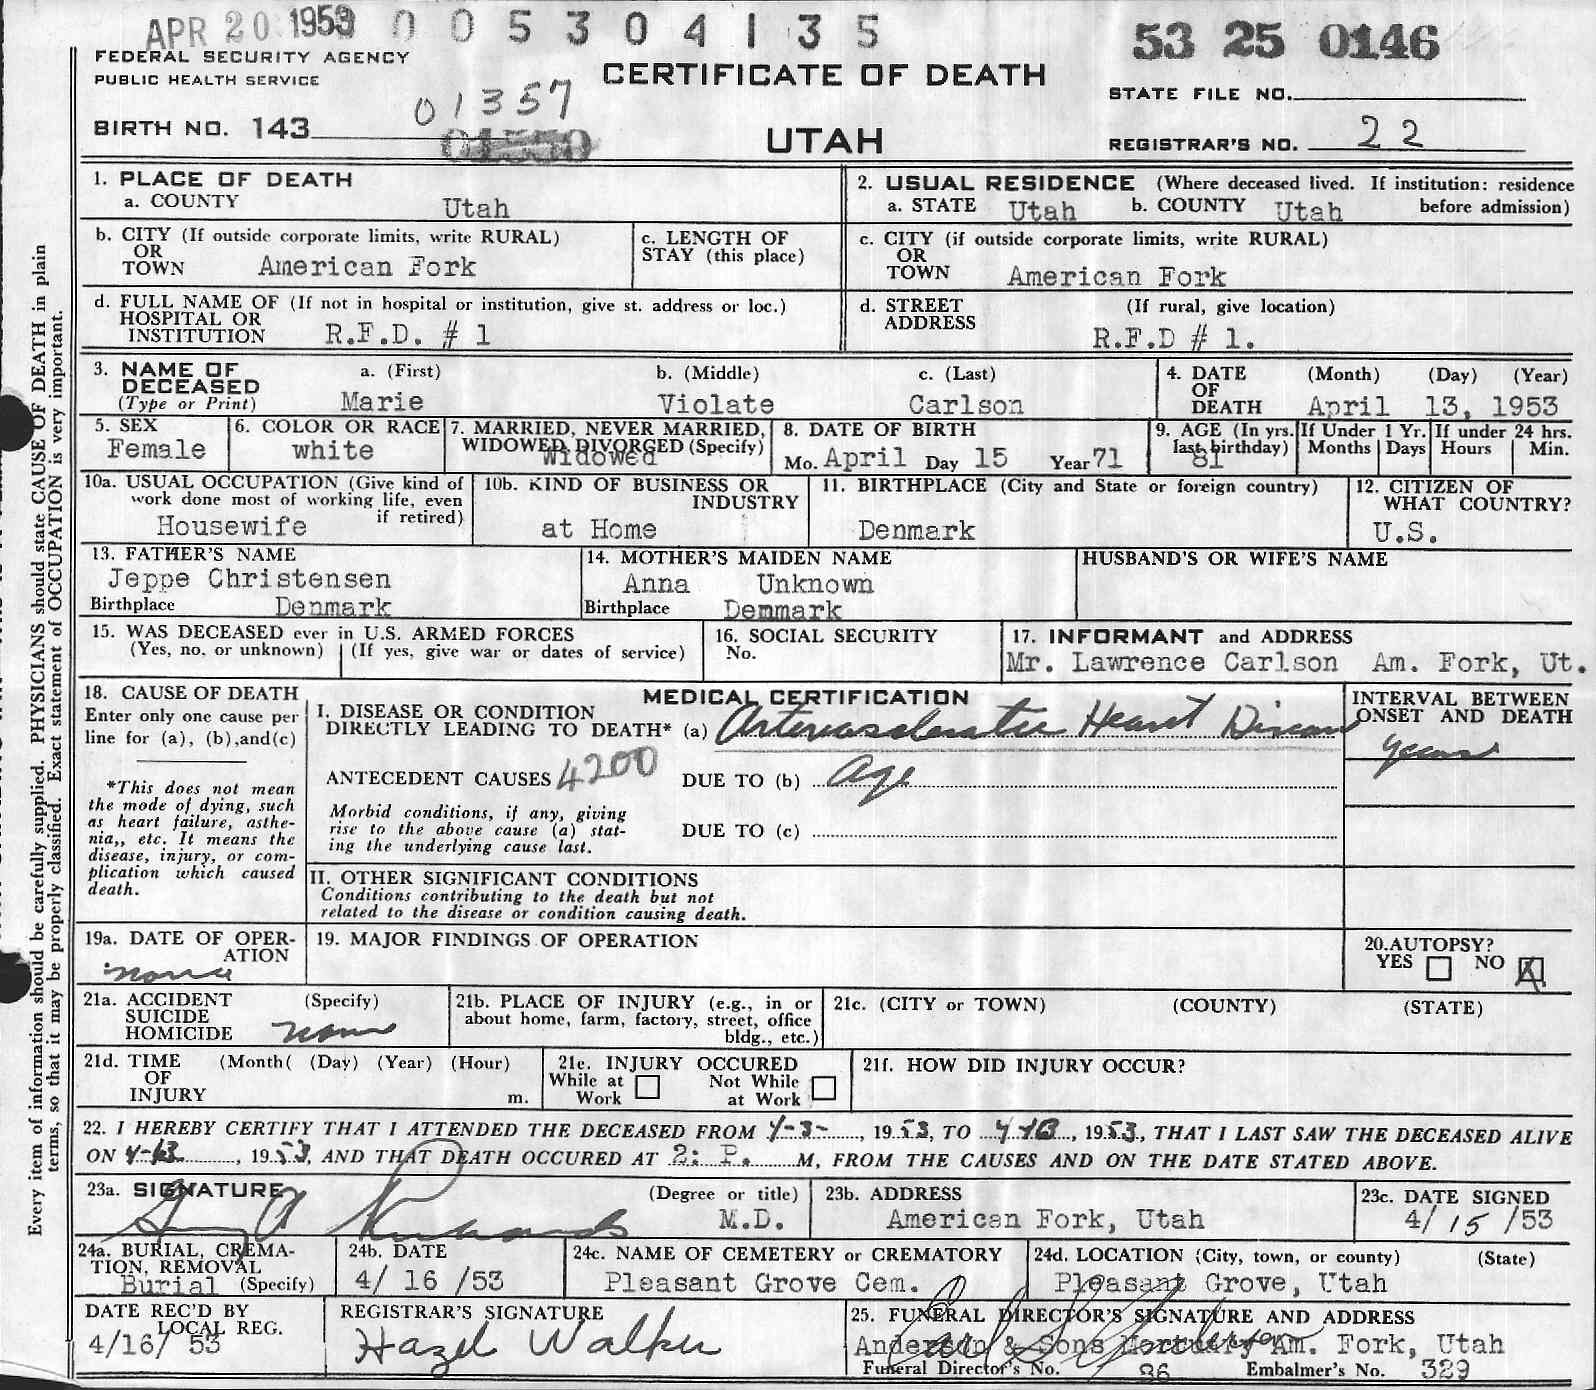 APR 20 1953 0 0 5 3 0 4 1 3 5 53 25 0146
FEDERAL SECURITY AGENCY
PUBLIC HEALTH SERVICE
CERTIFICATE OF DEATH
STATE FILE NO.
01357
BIRTH NO. 143
01550
UTAH
REGISTRAR'S NO. 22
1. PLACE OF DEATH
a. COUNTY Utah
2. USUAL RESIDENCE (Where deceased lived. If institution: residence
a. STATE Utah b. COUNTY Utah before admission)
b. CITY (If outside corporate limits, write RURAL)
OR
TOWN American Fork
c. LENGTH OF
STAY (this place)
c. CITY (if outside corporate limits, write RURAL)
OR
TOWN American Fork
d. FULL NAME OF (If not in hospital or institution, give st. address or loc.)
HOSPITAL OR
INSTITUTION R.F.D. # 1
d. STREET (If rural, give location)
ADDRESS
R.F.D # 1.
3. NAME OF a. (First) b. (Middle) c. (Last)
DECEASED
(Type or Print) Marie Violate Carlson
4. DATE (Month) (Day) (Year)
OF
DEATH April 13, 1953
5. SEX
Female
6. COLOR OR RACE
white
7. MARRIED, NEVER MARRIED,
WIDOWED, DIVORCED (Specify)
Widowed
8. DATE OF BIRTH
Mo. April Day 15 Year 71
9. AGE (In yrs.
last birthday)
81
If Under 1 Yr.
Months Days
If under 24 hrs.
Hours Min.
10a. USUAL OCCUPATION (Give kind of
work done most of working life, even
if retired)
Housewife
10b. KIND OF BUSINESS OR
INDUSTRY
at Home
11. BIRTHPLACE (City and State or foreign country)
Denmark
12. CITIZEN OF
WHAT COUNTRY?
U.S.
13. FATHER'S NAME
Jeppe Christensen
Birthplace Denmark
14. MOTHER'S MAIDEN NAME
Anna Unknown
Birthplace Denmark
HUSBAND'S OR WIFE'S NAME
15. WAS DECEASED ever in U.S. ARMED FORCES
(Yes, no, or unknown) (If yes, give war or dates of service)
16. SOCIAL SECURITY
No.
17. INFORMANT and ADDRESS
Mr. Lawrence Carlson Am. Fork, Ut.
18. CAUSE OF DEATH
Enter only one cause per
line for (a), (b),and(c)
*This does not mean
the mode of dying, such
as heart failure, asthe-
nia,, etc. It means the
disease, injury, or com-
plication which caused
death.
MEDICAL CERTIFICATION
I. DISEASE OR CONDITION
DIRECTLY LEADING TO DEATH* (a) Arteriosclerotic Heart Disease
ANTECEDENT CAUSES 4200 DUE TO (b) Age
Morbid conditions, if any, giving
rise to the above cause (a) stat-
ing the underlying cause last.
DUE TO (c)
INTERVAL BETWEEN
ONSET AND DEATH
years
II. OTHER SIGNIFICANT CONDITIONS
Conditions contributing to the death but not
related to the disease or condition causing death.
19a. DATE OF OPER-
ATION
none
19. MAJOR FINDINGS OF OPERATION
20.AUTOPSY?
YES NO X
21a. ACCIDENT (Specify)
SUICIDE
HOMICIDE none
21b. PLACE OF INJURY (e.g., in or
about home, farm, factory, street, office
bldg., etc.)
21c. (CITY or TOWN) (COUNTY) (STATE)
21d. TIME (Month( (Day) (Year) (Hour)
OF
INJURY m.
21e. INJURY OCCURED
While at Not While
Work at Work
21f. HOW DID INJURY OCCUR?
22. I HEREBY CERTIFY THAT I ATTENDED THE DECEASED FROM 4-3-, 1953, TO 4-13, 1953, THAT I LAST SAW THE DECEASED ALIVE
ON 4-13, 1953, AND THAT DEATH OCCURED AT 2: P. M, FROM THE CAUSES AND ON THE DATE STATED ABOVE.
23a. SIGNATURE (Degree or title)
Richards M.D.
23b. ADDRESS
American Fork, Utah
23c. DATE SIGNED
4/ 15 /53
24a. BURIAL, CREMA-
TION, REMOVAL
Burial (Specify)
24b. DATE
4/ 16 /53
24c. NAME OF CEMETERY or CREMATORY
Pleasant Grove Cem.
24d. LOCATION (City, town, or county) (State)
Pleasant Grove, Utah
DATE REC'D BY
LOCAL REG.
4/16/ 53
REGISTRAR'S SIGNATURE
Hazel Walker
25. FUNERAL DIRECTOR'S SIGNATURE AND ADDRESS
Anderson & Sons Mortuary Am. Fork, Utah
Funeral Director's No. 86 Embalmer's No. 329
Every item of information should be carefully supplied. PHYSICIANS should state CAUSE OF DEATH in plain
terms, so that it may be properly classified. Exact statement of OCCUPATION is very important.